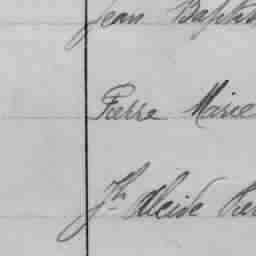 Jean Baptis
Pierre Marie
Jh Alcide